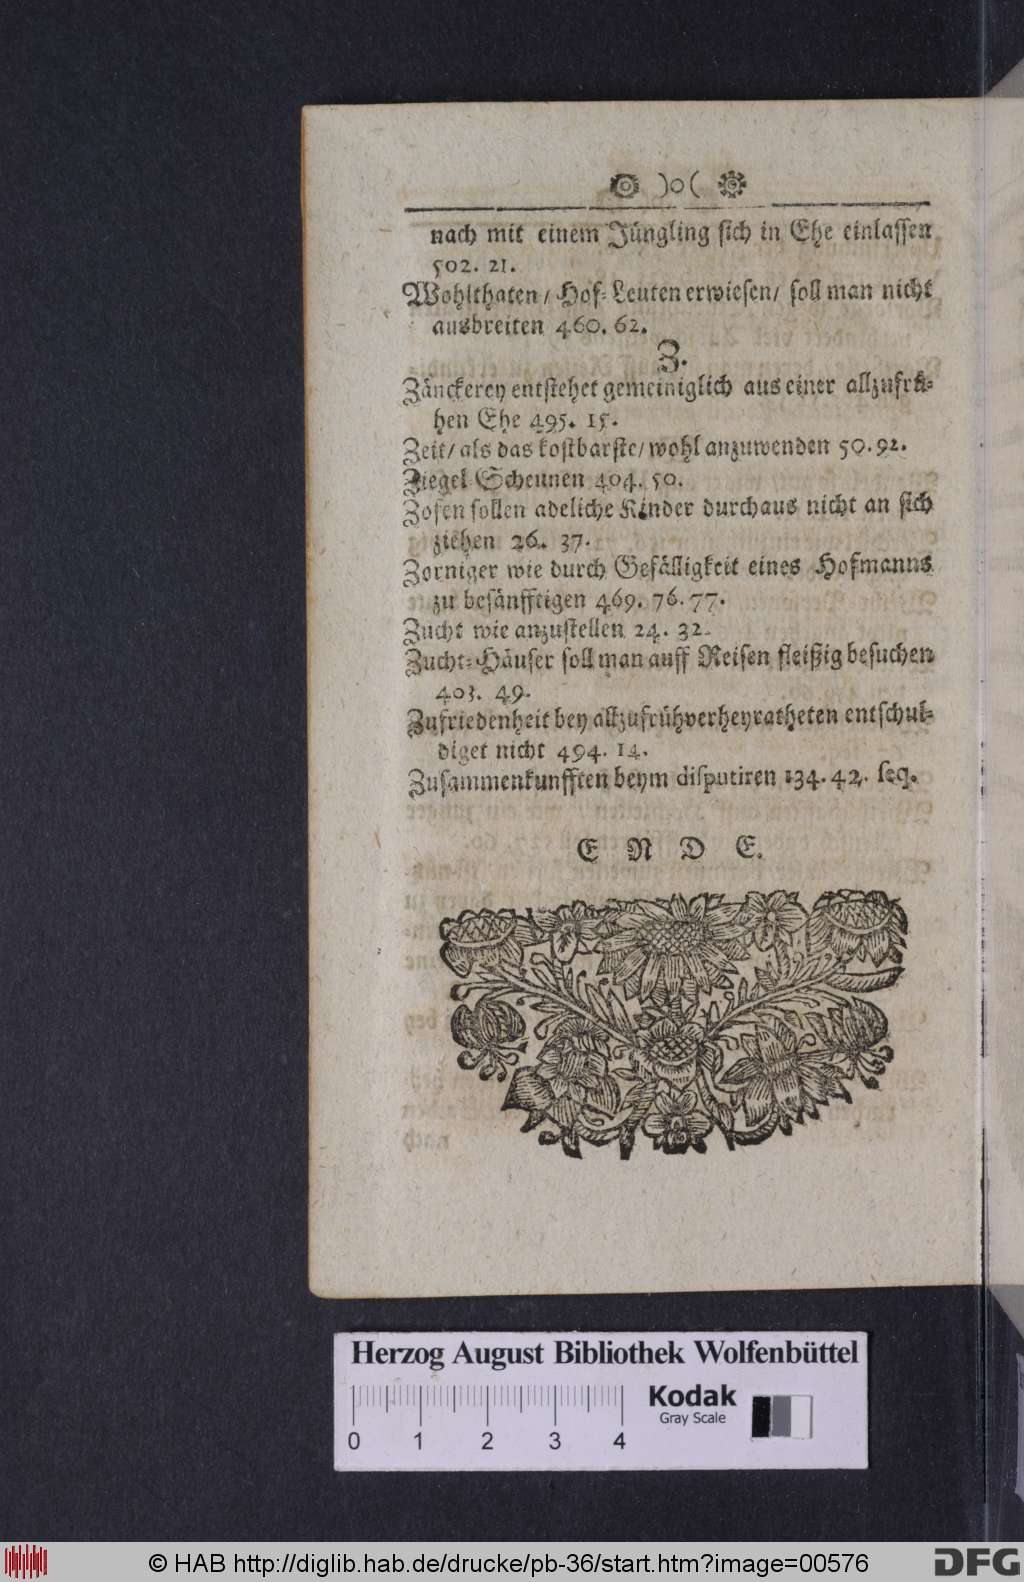 )o(
nach mit einem Jüngling sich in Ehe einlassen
502. 21.
Wohlthaten / Hof-Leuten erwiesen / soll man nicht
ausbreiten 460. 62.
Z.
Zänckerey entstehet gemeiniglich aus einer allzufrü-
hen Ehe 495. 15.
Zeit / als das kostbarste / wohl anzuwenden 50. 92.
Ziegel-Scheunen 404. 50.
Zofen sollen adeliche Kinder durchaus nicht an sich
ziehen 26. 37.
Zorniger wie durch Gefälligkeit eines Hofmanns
zu besänfftigen 469. 76. 77.
Zucht wie anzustellen 24. 32.
Zucht-Häuser soll man auff Reisen fleißig besuchen
403. 49.
Zufriedenheit bey allzufrühverheyratheten entschul-
diget nicht 494. 14.
Zusammenkunfften beym disputiren 134. 42. seq.
E N D E.
Herzog August Bibliothek Wolfenbüttel
Kodak
Gray Scale
0 1 2 3 4
© HAB http://diglib.hab.de/drucke/pb-36/start.htm?image=00576
DFG